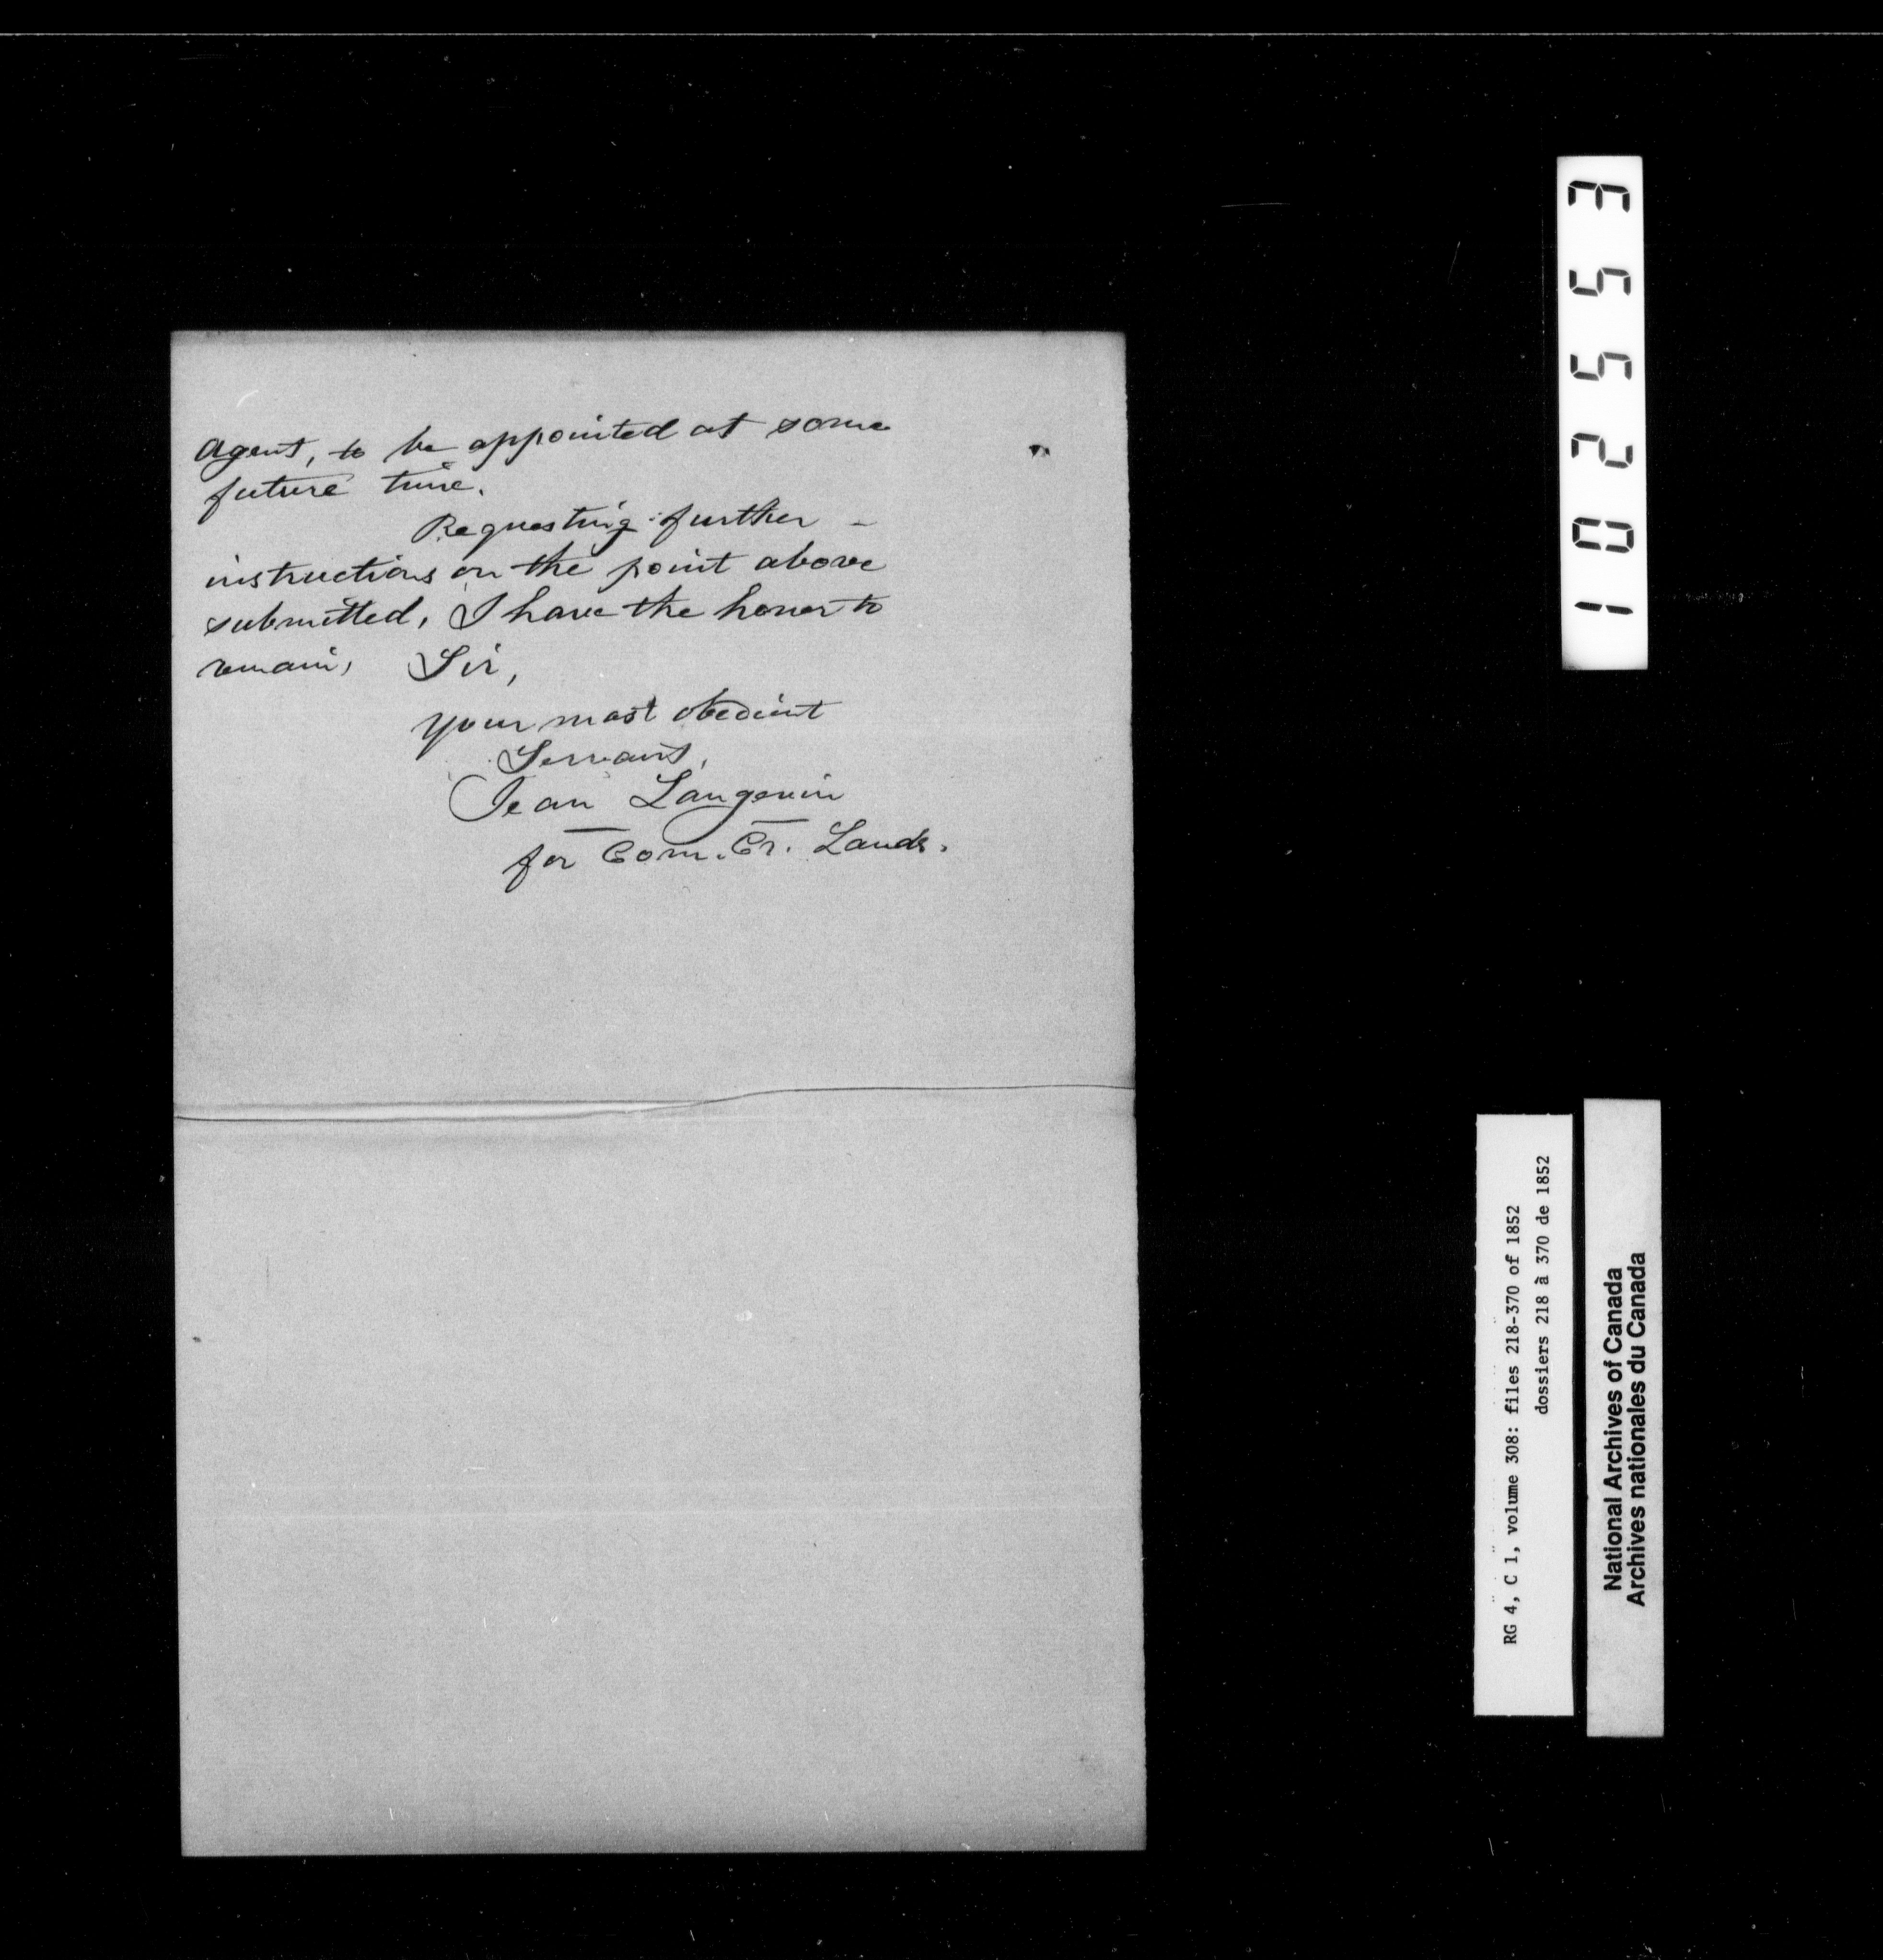 agent, to be appointed at some
future time.
Requesting further –
instructions on the point above
submitted, I have the honor to
remain, Sir,
your most obedient
Servant,
Jean Langevin
for Com. Cr. Lands.
102553
RG 4, C 1, volume 308: files 218-370 of 1852
dossiers 218 à 370 de 1852
National Archives of Canada
Archives nationales du Canada